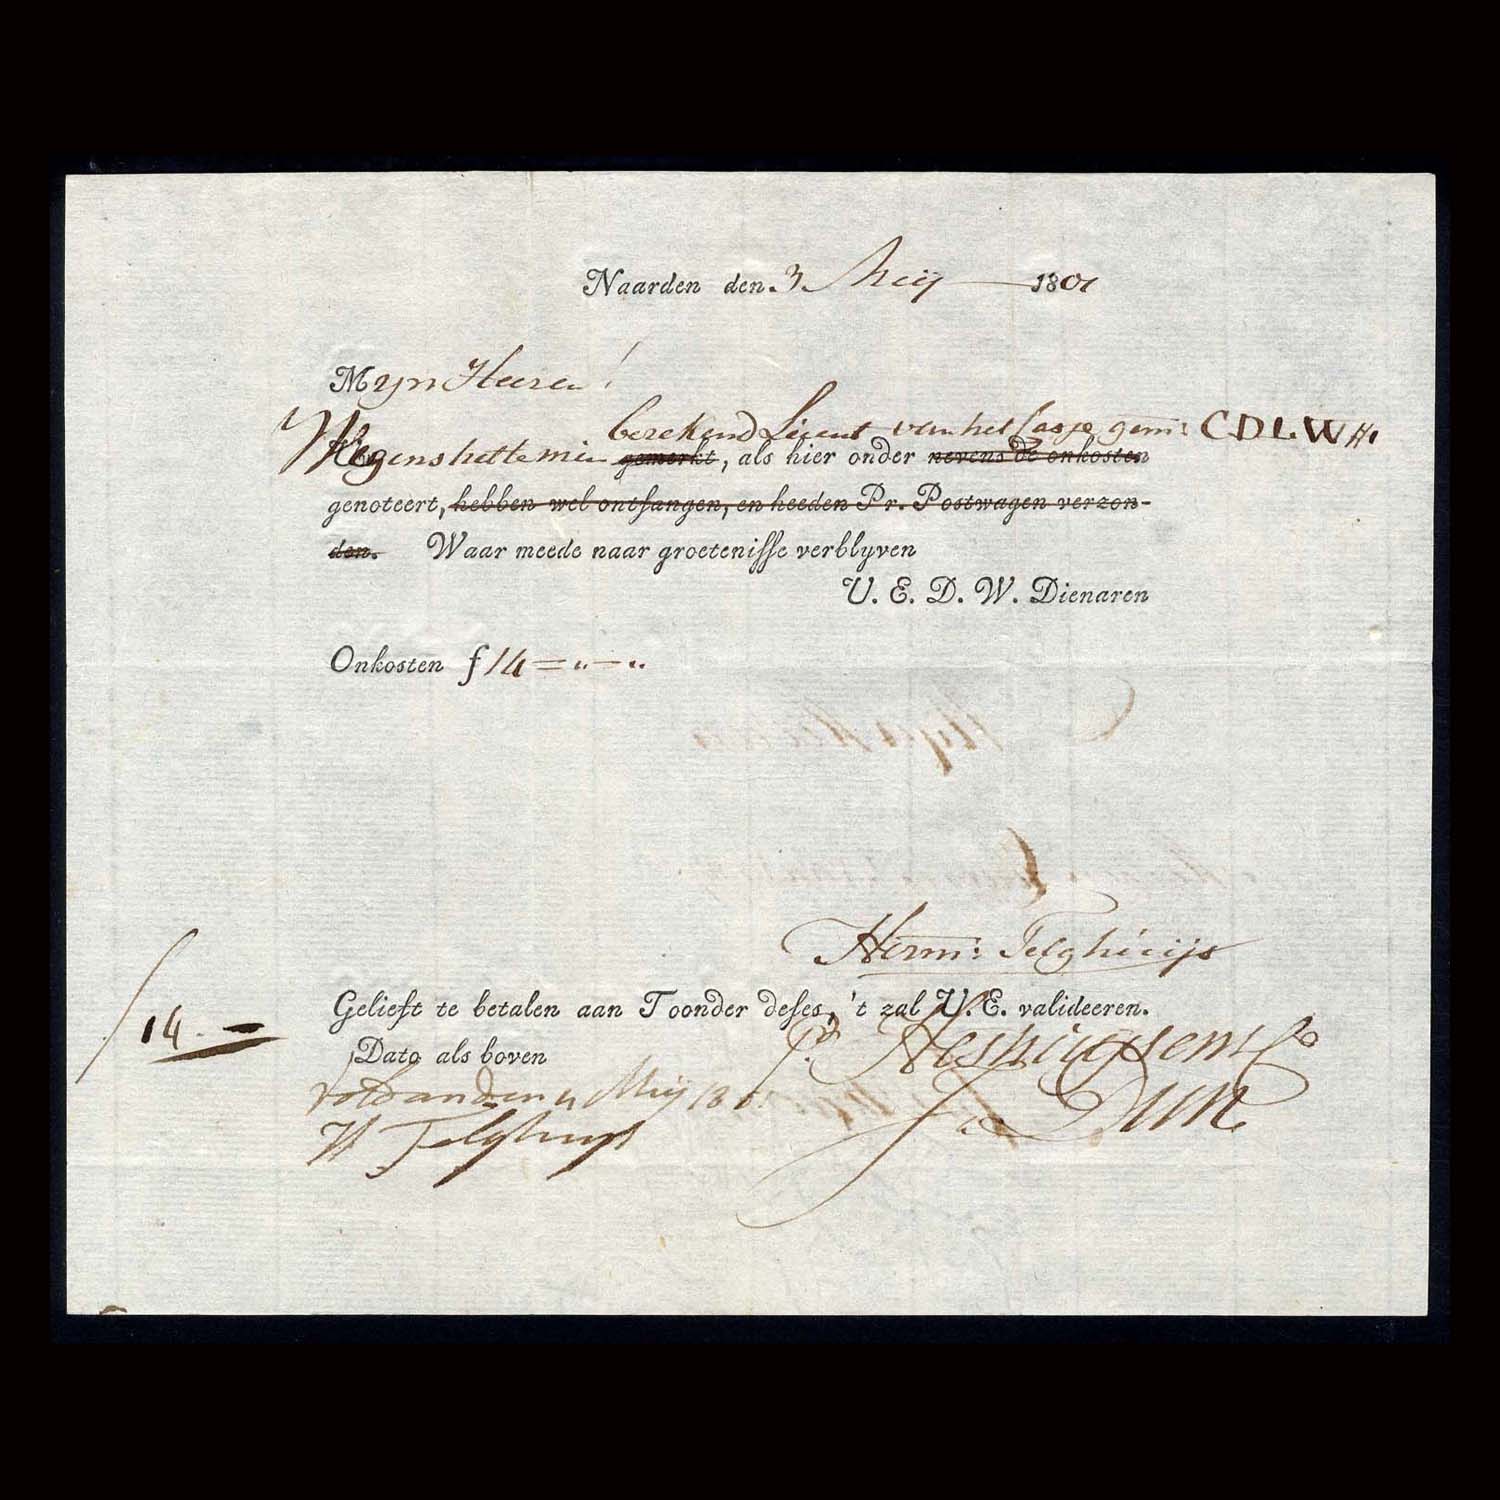 Naarden den 3 Meij 1801
Myn Heeren!
berekend Licent van het Casje gem: CDLWH.
Wegens hette min gemerkt, als hier onder nevens de onkosten
genoteert, hebben wel ontfangen, en heeden Pr. Postwagen verzon-
den. Waar meede naar groetenisse verblyven
U. E. D. W. Dienaren
Onkosten ƒ 14 = " — "
Herm: Telghuijs
Gelieft te betalen aan Toonder deses, 't zal U. E. valideeren.
ƒ 14. —
Dato als boven
voldaan den Meij 1801
H Telghuijs
Dun